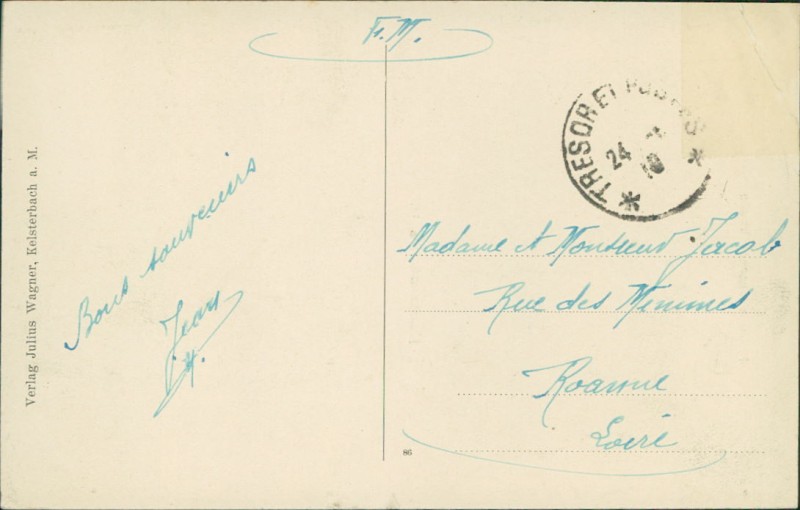 F. M.
TRESOR ET POSTES
24
Bons souvenirs
Jean
Madame et Monsieur Jacob
Rue des Minimes
Roanne
Loire
86
Verlag Julius Wagner, Kelsterbach a. M.